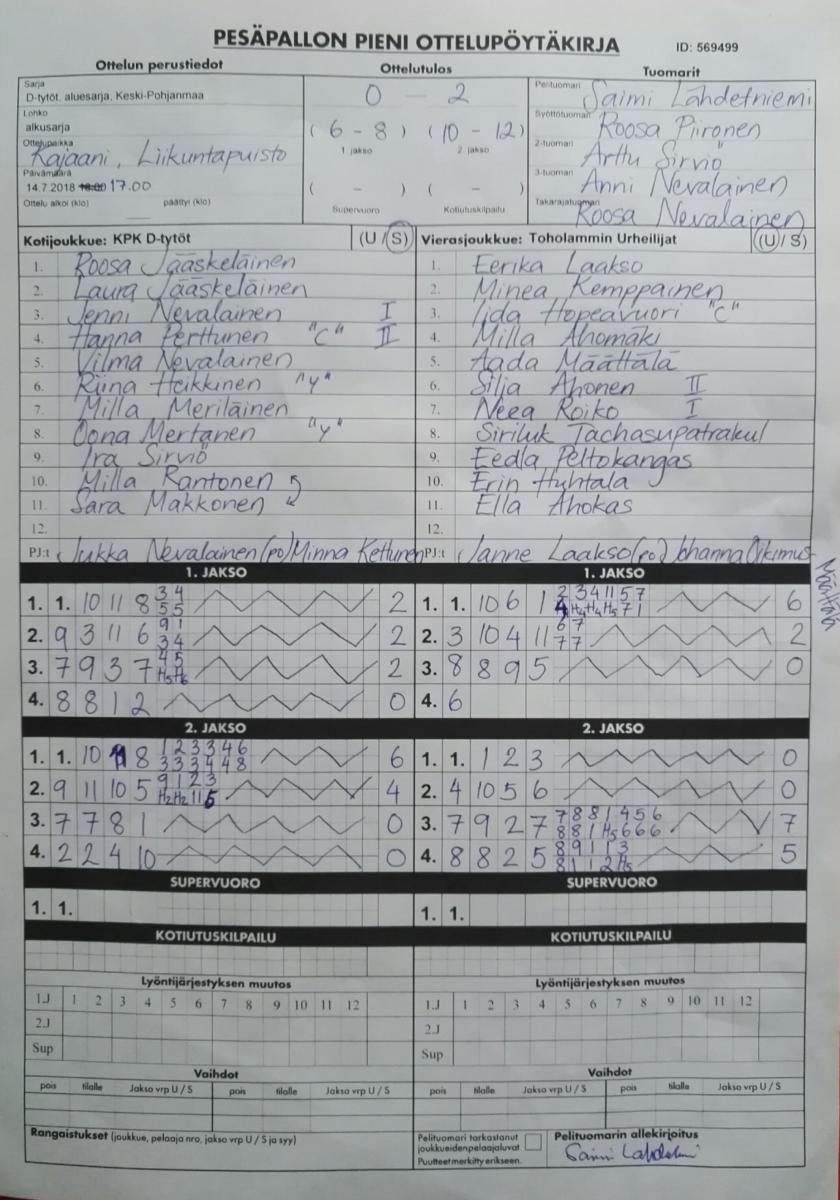 PESÄPALLON PIENI OTTELUPÖYTÄKIRJA
ID: 569499
Ottelun perustiedot
Ottelutulos
Tuomarit
Sarja
D-tytöt, aluesarja, Keski-Pohjanmaa
Lohko
alkusarja
Ottelupaikka
Kajaani, Liikuntapuisto
Päivämäärä
14.7.2018 18.00 17.00
Ottelu alkoi (klo) päättyi (klo)
0 - 2
( 6 - 8 ) ( 10 - 12 )
1 jakso 2 jakso
( - ) ( - )
Supervuoro Kotiutuskilpailu
Pelituomari Saimi Lähdetniemi
Syöttötuomari Roosa Piironen
2-tuomari Arttu Sirviö
3-tuomari Anni Nevalainen
Takarajatuomari Roosa Nevalainen
Kotijoukkue: KPK D-tytöt (U / S)
1. Roosa Jääskeläinen
2. Laura Jääskeläinen
3. Jenni Nevalainen I
4. Hanna Perttunen "C" II
5. Vilma Nevalainen
6. Riina Heikkinen "y"
7. Milla Meriläinen
8. Oona Mertanen "y"
9. Ira Sirviö
10. Milla Rantonen
11. Sara Makkonen
12.
PJ:t Jukka Nevalainen (po) Minna Kettunen
Vierasjoukkue: Toholammin Urheilijat (U / S)
1. Eerika Laakso
2. Minea Kemppainen
3. Iida Hopeavuori "C"
4. Milla Ahomäki
5. Aada Määttälä
6. Silja Ahonen II
7. Neea Roiko I
8. Siriluk Tachasupatrakul
9. Eedla Peltokangas
10. Erin Huhtala
11. Ella Ahokas
12.
PJ:t Janne Laakso (po) Johanna Oikimus
Määttälä
1. JAKSO
1. 1. 10 11 8 3 4 2
5 5
2. 9 3 11 6 9 1 2
3 4
3. 7 9 3 7 4 5 2
H5 H6
4. 8 8 1 2 0
1. JAKSO
1. 1. 10 6 1 2 3 4 11 5 7 6
4 H4 H4 H5 7 1
2. 3 10 4 11 6 7 2
7 7
3. 8 8 9 5 0
4. 6
2. JAKSO
1. 1. 10 11 8 1 2 3 3 4 6 6
3 3 3 4 4 8
2. 9 11 10 5 9 1 2 3 4
H2 H2 11 5
3. 7 7 8 1 0
4. 2 2 4 10 0
2. JAKSO
1. 1. 1 2 3 0
2. 4 10 5 6 0
3. 7 9 2 7 7 8 8 1 4 5 6 7
8 8 1 H5 6 6 6
4. 8 8 2 5 8 9 1 1 3 5
8 1 1 2 H5
SUPERVUORO
1. 1.
SUPERVUORO
1. 1.
KOTIUTUSKILPAILU
KOTIUTUSKILPAILU
Lyöntijärjestyksen muutos
1.J 1 2 3 4 5 6 7 8 9 10 11 12
2.J
Sup
Lyöntijärjestyksen muutos
1.J 1 2 3 4 5 6 7 8 9 10 11 12
2.J
Sup
Vaihdot
pois tilalle Jakso vrp U / S pois tilalle Jakso vrp U / S
Vaihdot
pois tilalle Jakso vrp U / S pois tilalle Jakso vrp U / S
Rangaistukset (joukkue, pelaaja nro, jakso vrp U / S ja syy)
Pelituomari tarkastanut
joukkueidenpelaajaluvat.
Puutteet merkitty erikseen.
Pelituomarin allekirjoitus